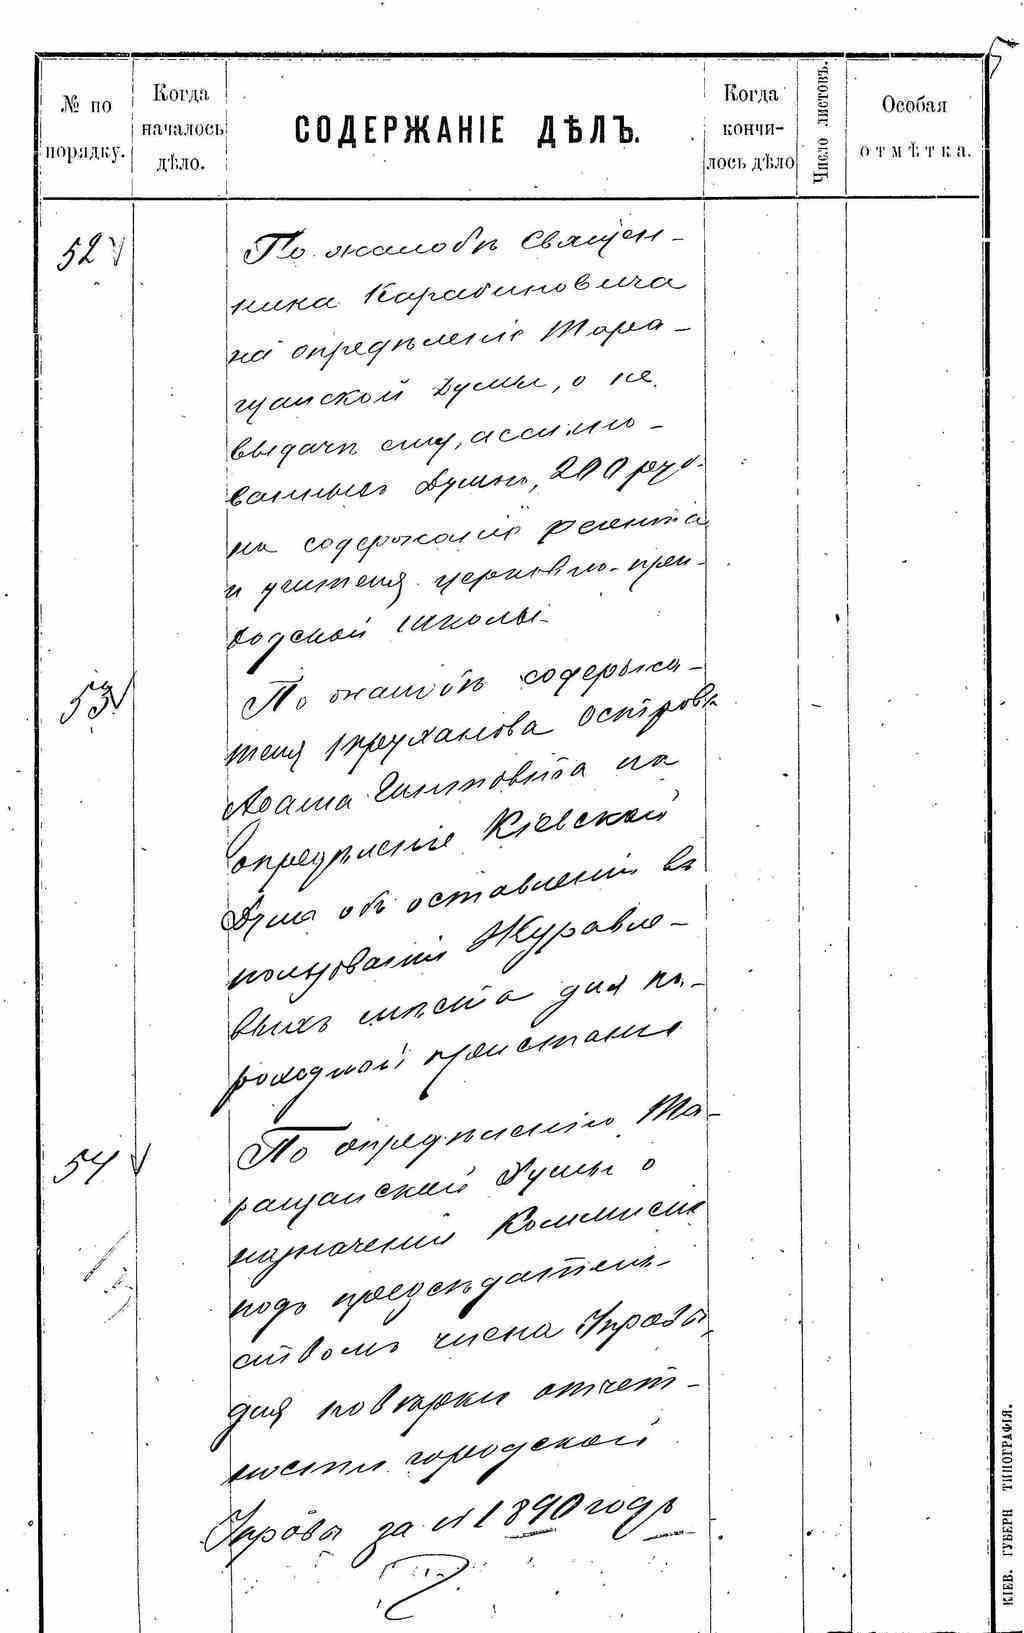 5
№ по порядку.
Когда началось дѣло.
СОДЕРЖАНІЕ ДѢЛЪ.
Когда кончи-лось дѣло
Число листовъ.
Особая отмѣтка.
52
По жалобѣ Священ-
ника Карабиновича
на опредѣленіе Тара-
щанской Думы, о не
выдачѣ ему, ассигно-
ванныхъ Думою, 200 руб.
на содержаніе регента
и учителя церковно-при-
ходской школы.
53
По жалобѣ содержа-
теля Труханова Острова
Адама
на
опредѣленіе Кіевской
Думы объ оставленіи въ
пользованіи Журавле-
выхъ мѣста для па-
роходной пристани
54
По опредѣленію Та-
ращанской Думы о
назначеніи Коммисіи
подъ предсѣдатель-
ствомъ члена Управы,
для повѣрки отчет-
ности городской
Управы за 1890 годъ
КІЕВ. ГУБЕРН ТИПОГРАФІЯ.